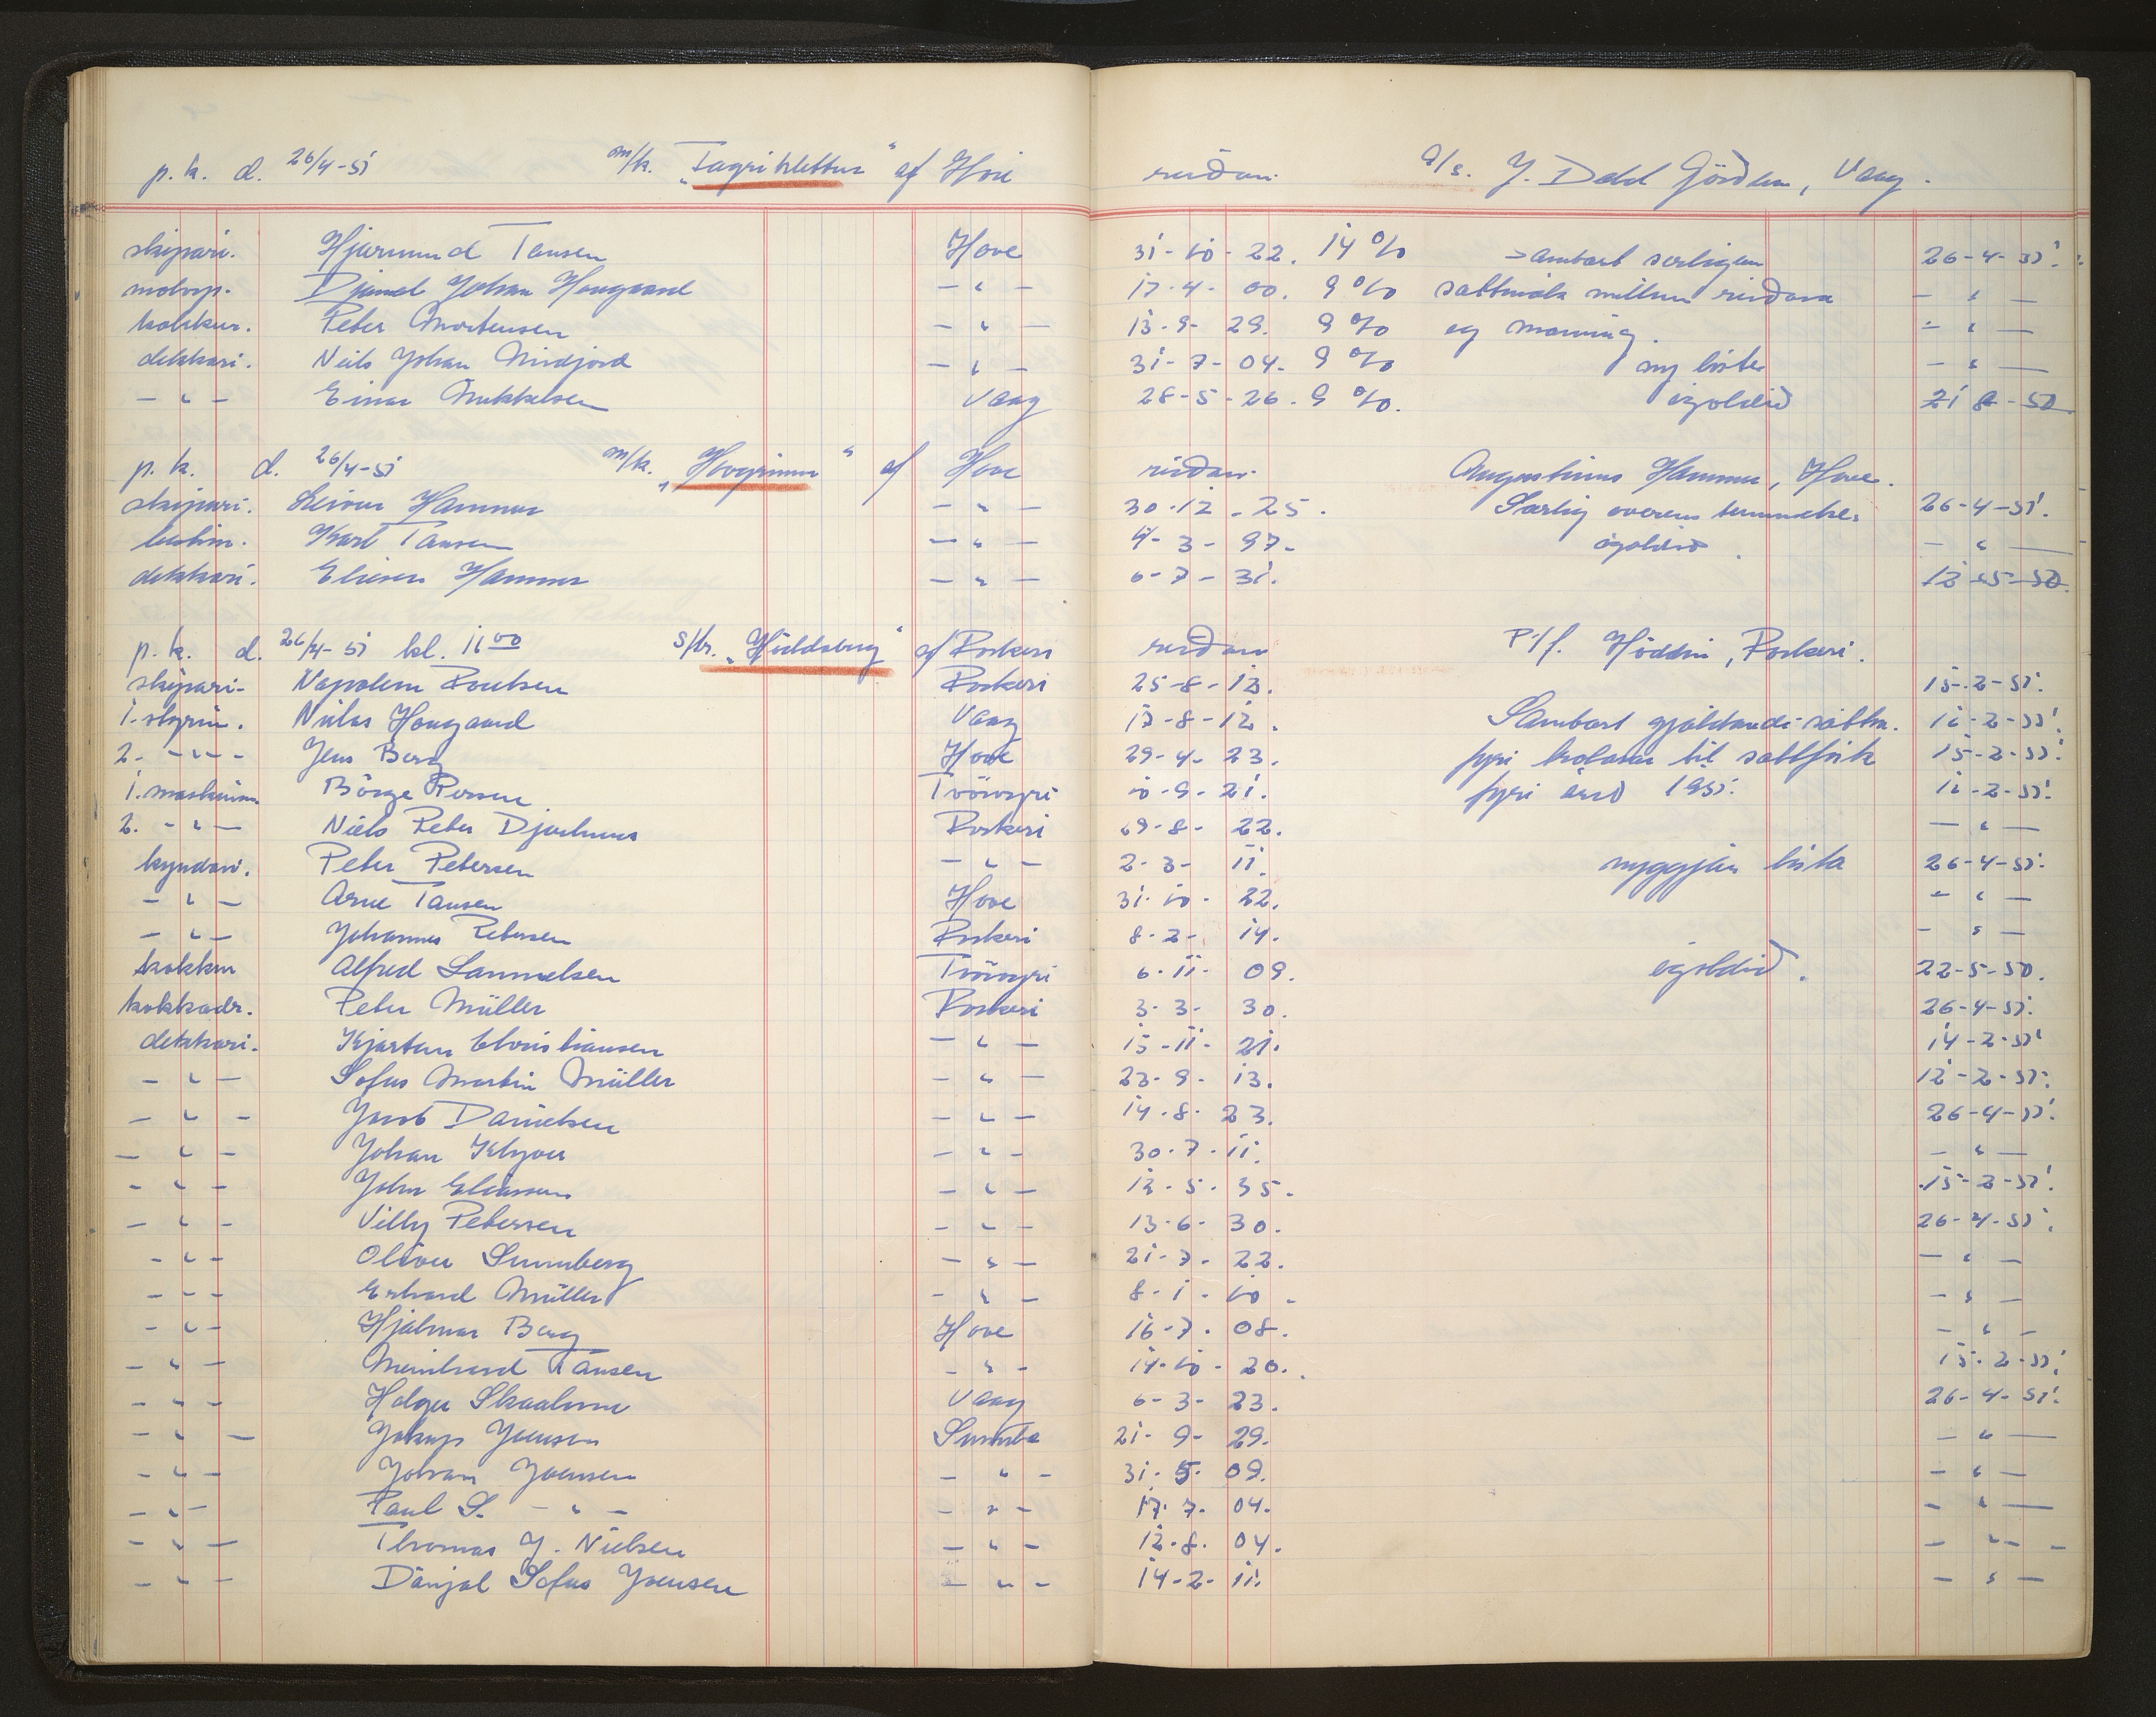 p. k. d. 26/4-51 m/k. „Fagriklettur“ af Hove reiðari A/s. J. Dahl Gørðum, Vaag.
skipari. Hjarmund Tausen Hove 31-10-22. 14 % Sambart serligum 26-4-51.
motorp. Djóni Johan Hougaard - " - 17-4-00. 9 % sáttmála millum reiðara - " -
kokkur. Peter Mortensen - " - 13-9-29. 9 % og manning. - " -
dekkari. Niels Johan Midjord - " - 31-7-04. 9 % ny liste - " -
- " - Einar Mikkelsen Vaag 28-5-26. 9 %. ógoldið 21-8-50
p. k. d. 26/4-51 m/k. „Hovgrimur“ af Hove reiðari Augustinus Hammer, Hove.
skipari. Leivur Hammer - " - 30-12-25. Særlig overens temmelse. 26-4-51.
bestm. Karl Tausen - " - 4-3-97- ógoldið. - " -
dekkari. Elieser Hammer - " - 6-7-31. 12-5-50.
p. k. d. 26/4-51 kl. 11 00 s/tr. „Høddaberg“ af Porkeri reiðari P/f. Høddin, Porkeri.
skipari- Napoleon Poulsen Porkeri 25-8-13. 15-2-51.
1. styrim. Niclas Hougaard Vaag 17-8-12. Sambart gjaldandi sáttm. 12-2-51.
2. - " - Jens Berg Hove 29-4-23. fyri trolarar til saltfisk 15-2-51.
1. maskinm. Børge Persen Tvöroyri 10-9-21. fyri árið 1951. 12-2-51.
2. - " - Niels Peter Djurhuus Porkeri 29-8-22. - " -
kyndari. Peter Petersen - " - 2-3-11. nyggjan lista 26-4-51.
- " - Arne Tausen Hove 31-10-22. - " -
- " - Johannes Petersen Porkeri 8-2-14. - " -
kokkur Alfred Samuelsen Tvöroyri 6-11-09. ógoldið. 22-5-50.
kokkadr. Peter Müller Porkeri 3-3-30. 26-4-51.
dekkari. Kjartan Christiansen - " - 15-11-21. 14-2-51
- " - Sofus Martin Müller - " - 23-9-13. 12-2-51.
- " - Jacob Danielsen - " - 14-8-23. 26-4-51.
- " - Johan Kjlver - " - 30-7-11. - " -
- " - John Eliassen - " - 12-5-35. 15-2-51.
- " - Villy Petersen - " - 13-6-30. 26-4-51.
- " - Oliver Sumberg - " - 21-7-22. - " -
- " - Erhard Müller - " - 8-1-10- - " -
- " - Hjálmar Berg Hove 16-7-08. - " -
- " - Meinhard Tausen - " - 14-10-20. 15-2-51.
- " - Holger Skaalum Vaag 6-3-23. 26-4-51.
- " - Jákup Joensen Sumba 21-9-29. - " -
- " - Johan Joensen - " - 31-5-09. - " -
- " - Paul S. - " - - " - 17-7-04. - " -
- " - Thomas J. Nielsen - " - 12-8-04. - " -
- " - Dánjal Sofus Joensen - " - 14-2-11. - " -